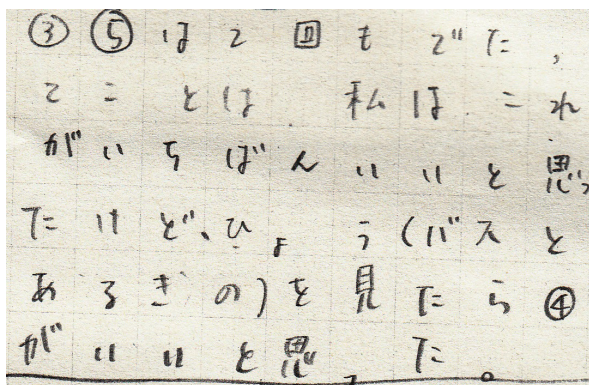 ③⑤は2回もでた、
てことは 私はこれ
がいちばんいいと思っ
たけど、ひょう(バスと
あるきの)を見たら④
がいいと思った。